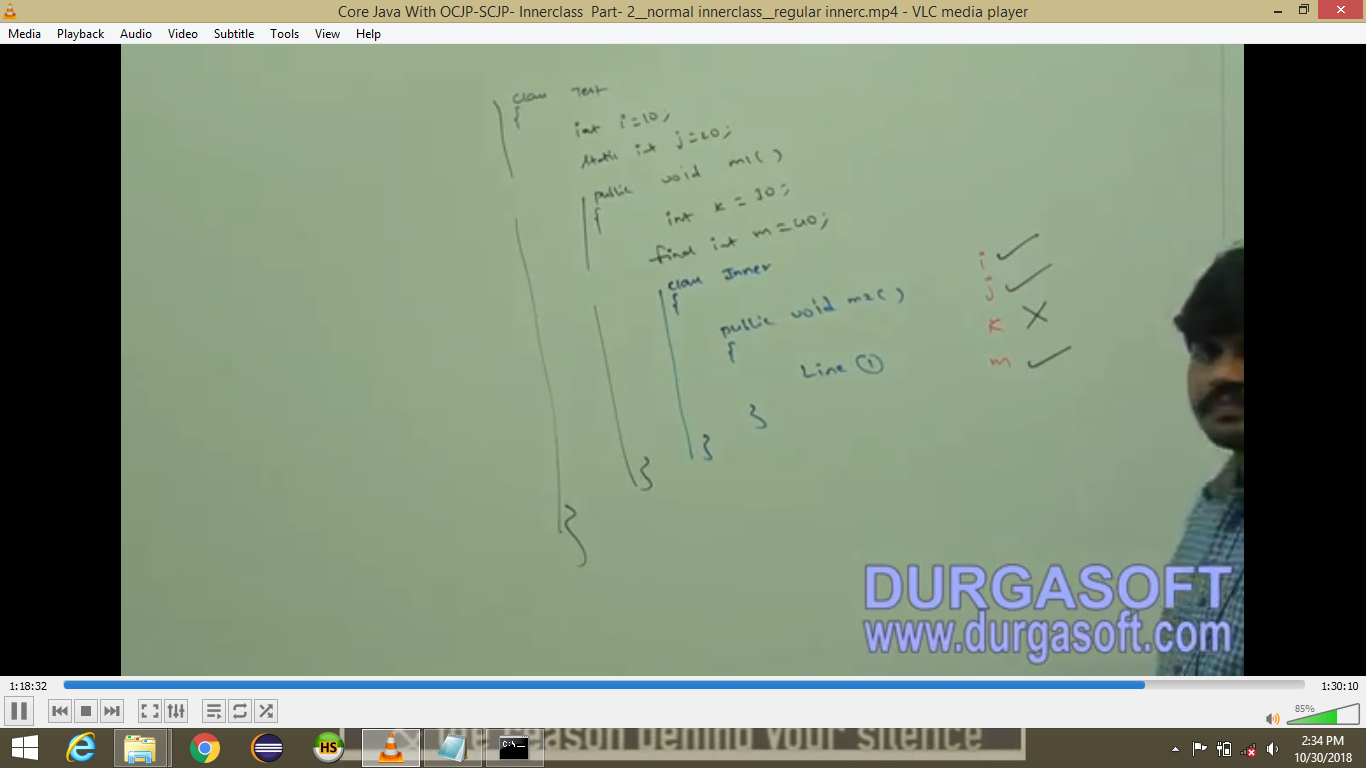 Core Java With OCJP-SCJP- Innerclass  Part- 2__normal innerclass__regular innerc.mp4 - VLC media player
Media Playback Audio Video Subtitle Tools View Help
class Test
{
int i=10;
static int j=20;
public void m1()
{
int k = 30;
final int m=40;
class Inner
{
public void m2()
{
Line ①
}
}
}
}
i ✓
j ✓
k X
m ✓
DURGASOFT
www.durgasoft.com
1:18:32
1:30:10
85%
HS
C:\.
reason behind your silence
2:34 PM
10/30/2018